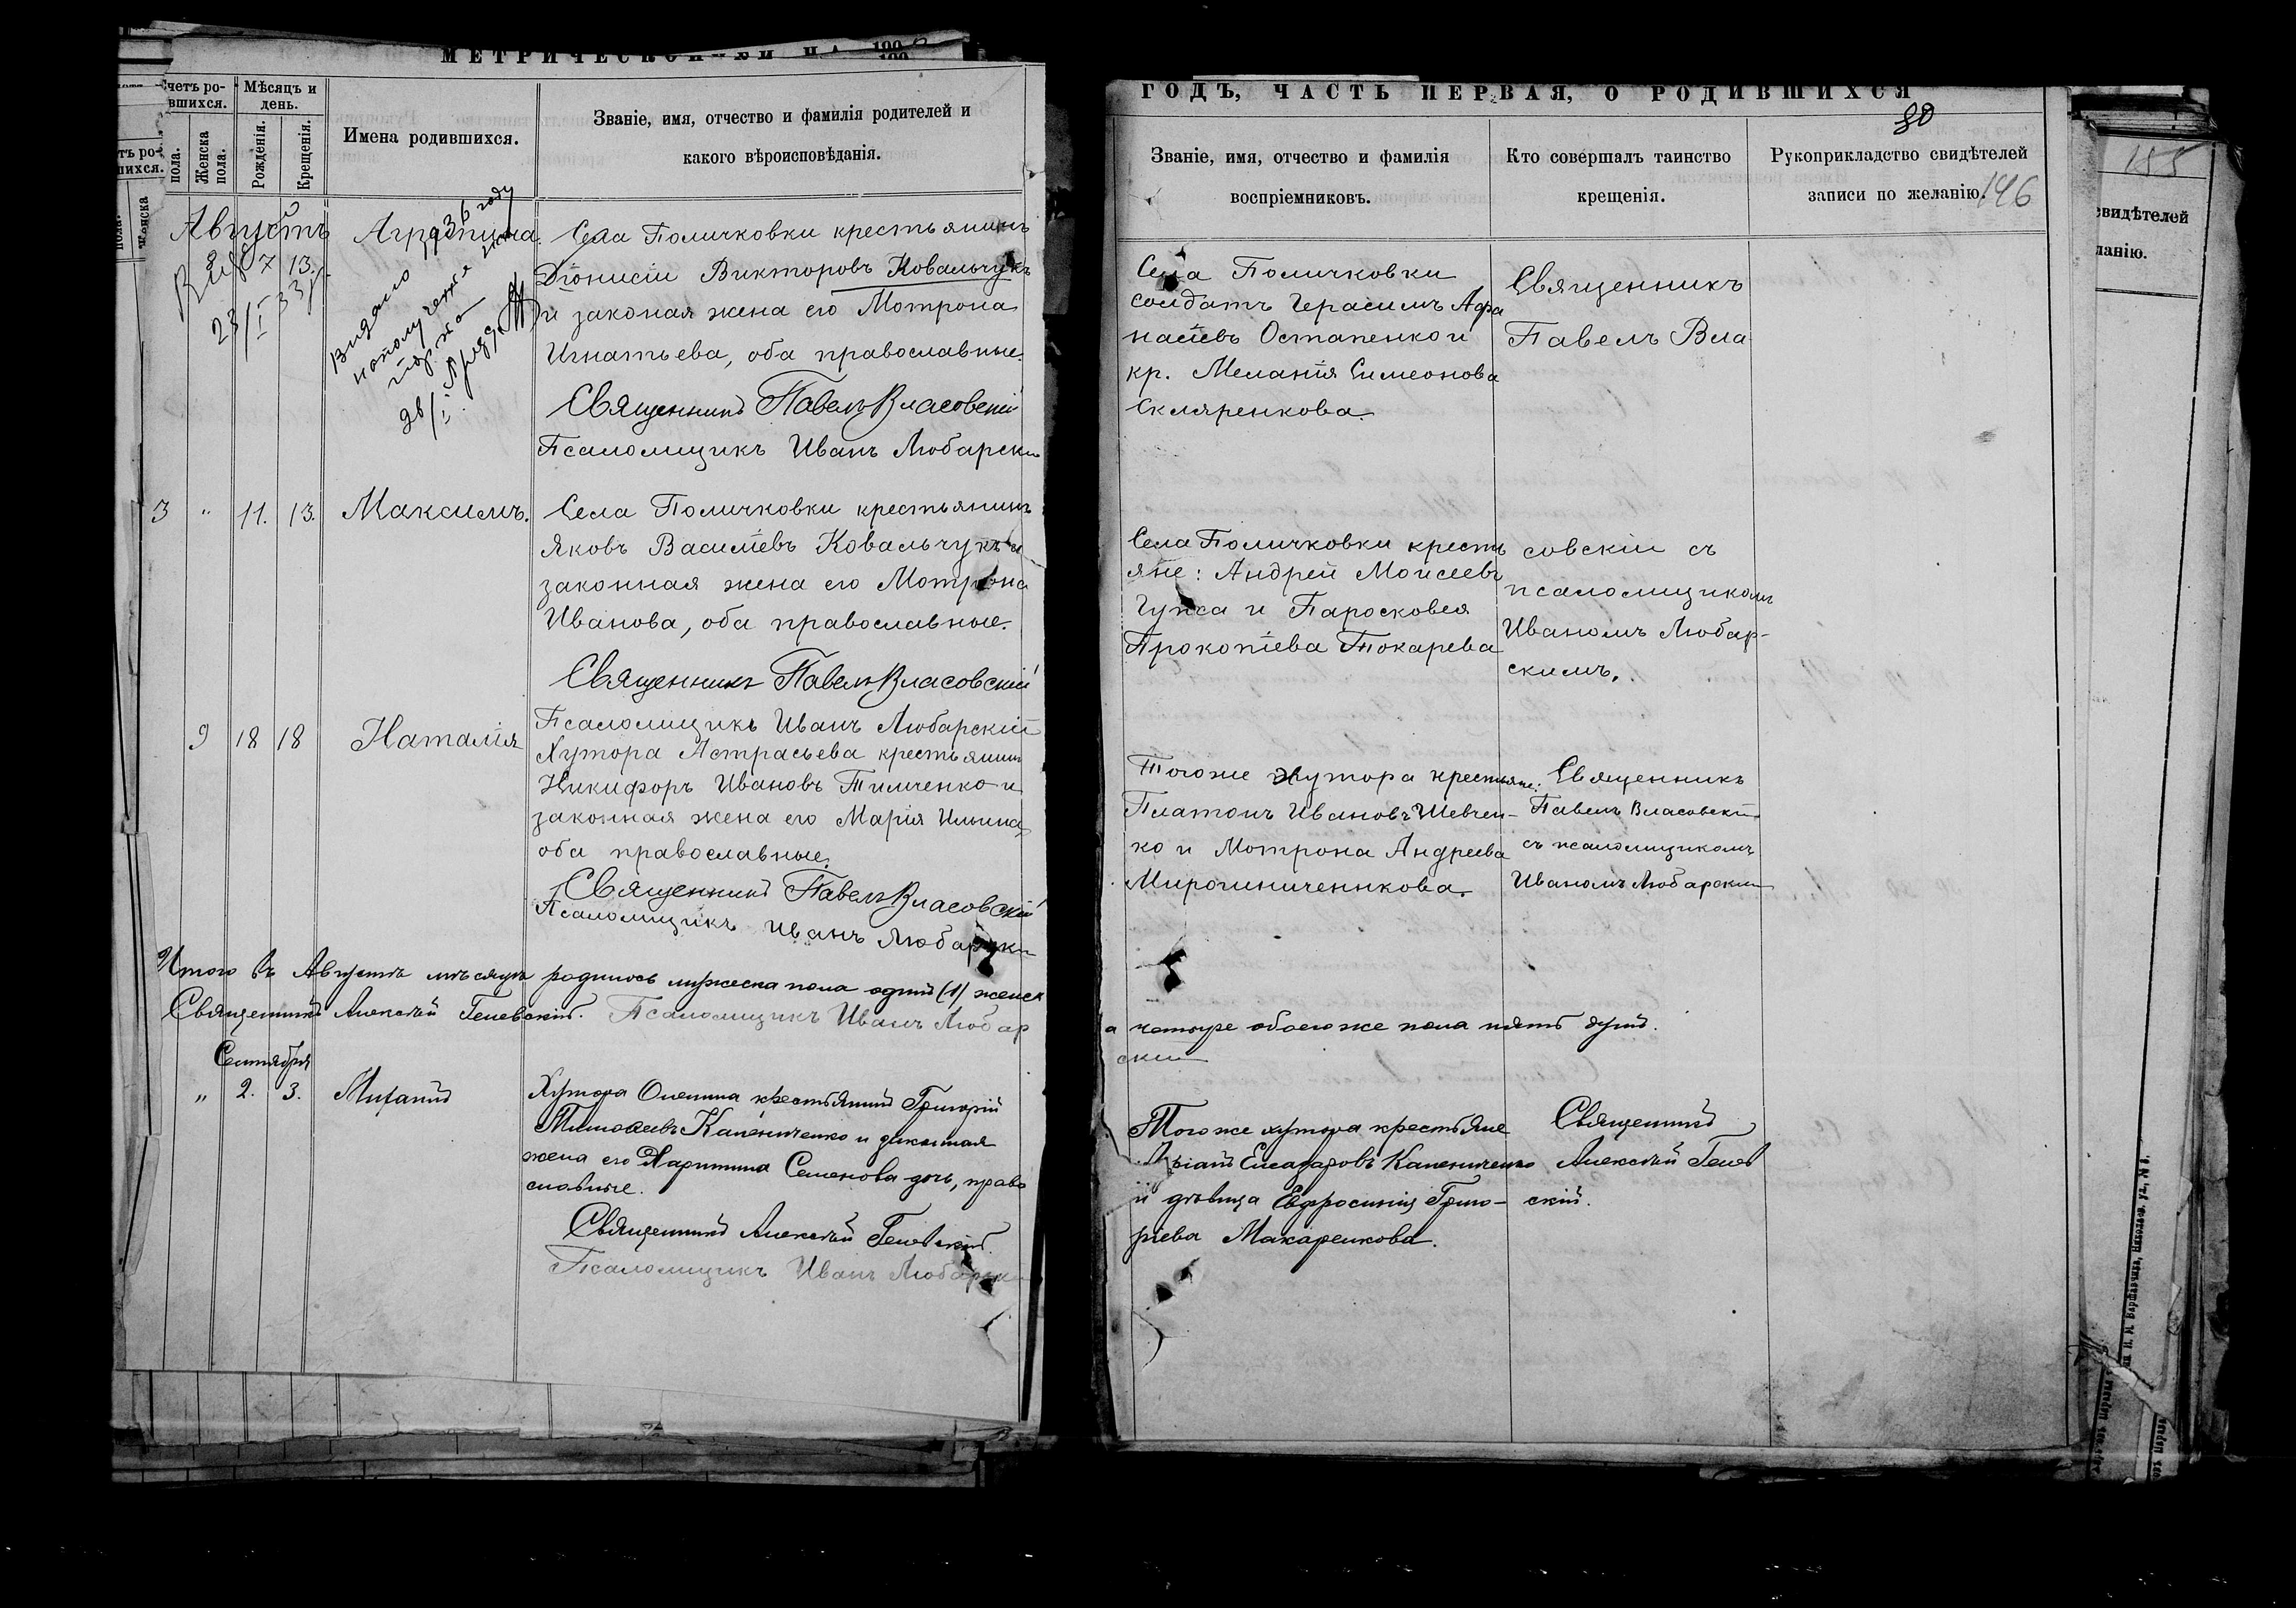 МЕТРИЧЕСКОЙ
Счетъ ро-
вшихся.
Мѣсяцъ и
день.
пола.
Женска
пола.
Рожденія.
Крещенія.
Имена родившихся.
Званіе, имя, отчество и фамилія родителей и
какого вѣроисповѣданія.
Августъ
7 13.
23/I 33
Агрипина.
1936 году
Видано
28/I
Села Поличковки крестьянинъ
Діонисій Викторовъ Ковальчукъ
и законая жена его Мотрона
Игнатьева, оба православные.
Священникъ Павелъ Власовскій
Псаломщикъ Иванъ Любарски
3 " 11. 13. Максимъ.
Села Поличковки крестьянинъ
Яковъ Василіевъ Ковальчукъ и
законная жена его Мотрона
Иванова, оба православные.
Священникъ Павелъ Власовскій
Псаломщикъ Иванъ Любарскій
9 18 18 Наталія
Хутора Астрасьева крестьянин
Никифоръ Ивановъ Тимченко и
законная жена его Марія Ильина,
оба православные.
Священникъ Павелъ Власовскій
Псаломщикъ Иванъ Любарски
Итого въ Августѣ мѣсяцѣ родилось мужеска пола одинъ (1) женск
Священникъ Алексѣй Геевскій. Псаломщикъ Иванъ Любар
Сентября
" 2. 3. Михаилъ
Хутора крестьянинъ Григорій
Тимофеевъ Капениченко и законная
жена его Харитина Семенова дочь, право
славные.
Священникъ Алексѣй
Псаломщикъ Иванъ Любарски
ГОДЪ, ЧАСТЬ ПЕРВАЯ, О РОДИВШИХСЯ
80
Званіе, имя, отчество и фамилія
воспріемниковъ.
Кто совершалъ таинство
крещенія.
Рукоприкладство свидѣтелей
записи по желанію.
146
Села Поличковки
солдатъ Герасимъ Афа
насіевъ Остапенко и
кр. Меланія Симеонова
Скляренкова.
Священникъ
Павелъ Вла
Села Поличковки кресть
яне: Андрей Моисеевъ
и Паросковея
Прокопіева Токарева
совскій съ
псаломщикомъ
Иваномъ Любар-
скимъ.
Того же хутора крестьяне:
Платонъ Ивановъ Шевчен-
ко и Мотрона Андреева
Мирошниченкова.
Священникъ
Павелъ Власовскій
съ псаломщикомъ
Иваномъ Любарским
а четыре обоего же пола пять душъ.
ски
Того же хутора крестьяне
Елеазаровъ Капениченко
и дѣвица Евфросинія Григо-
ріева Макаренкова.
Священникъ
Алексѣй
скій.
155
свидѣтелей
ланію.